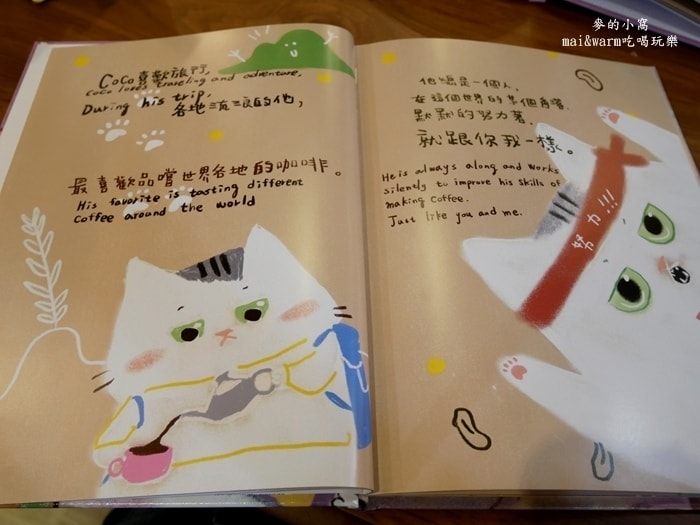 麥的小窩
mai&warm吃喝玩樂
CoCo喜歡旅行,
Coco loves traveling and adventure.
During his trip,
各地流浪的他,
最喜歡品嚐世界各地的咖啡。
His favorite is tasting different
Coffee around the world
他總是一個人,
在這個世界的某個角落
默默的努力著,
就跟你我一樣。
He is always along and works
silently to improve his skills of
making Coffee.
Just like you and me.
努力!!!